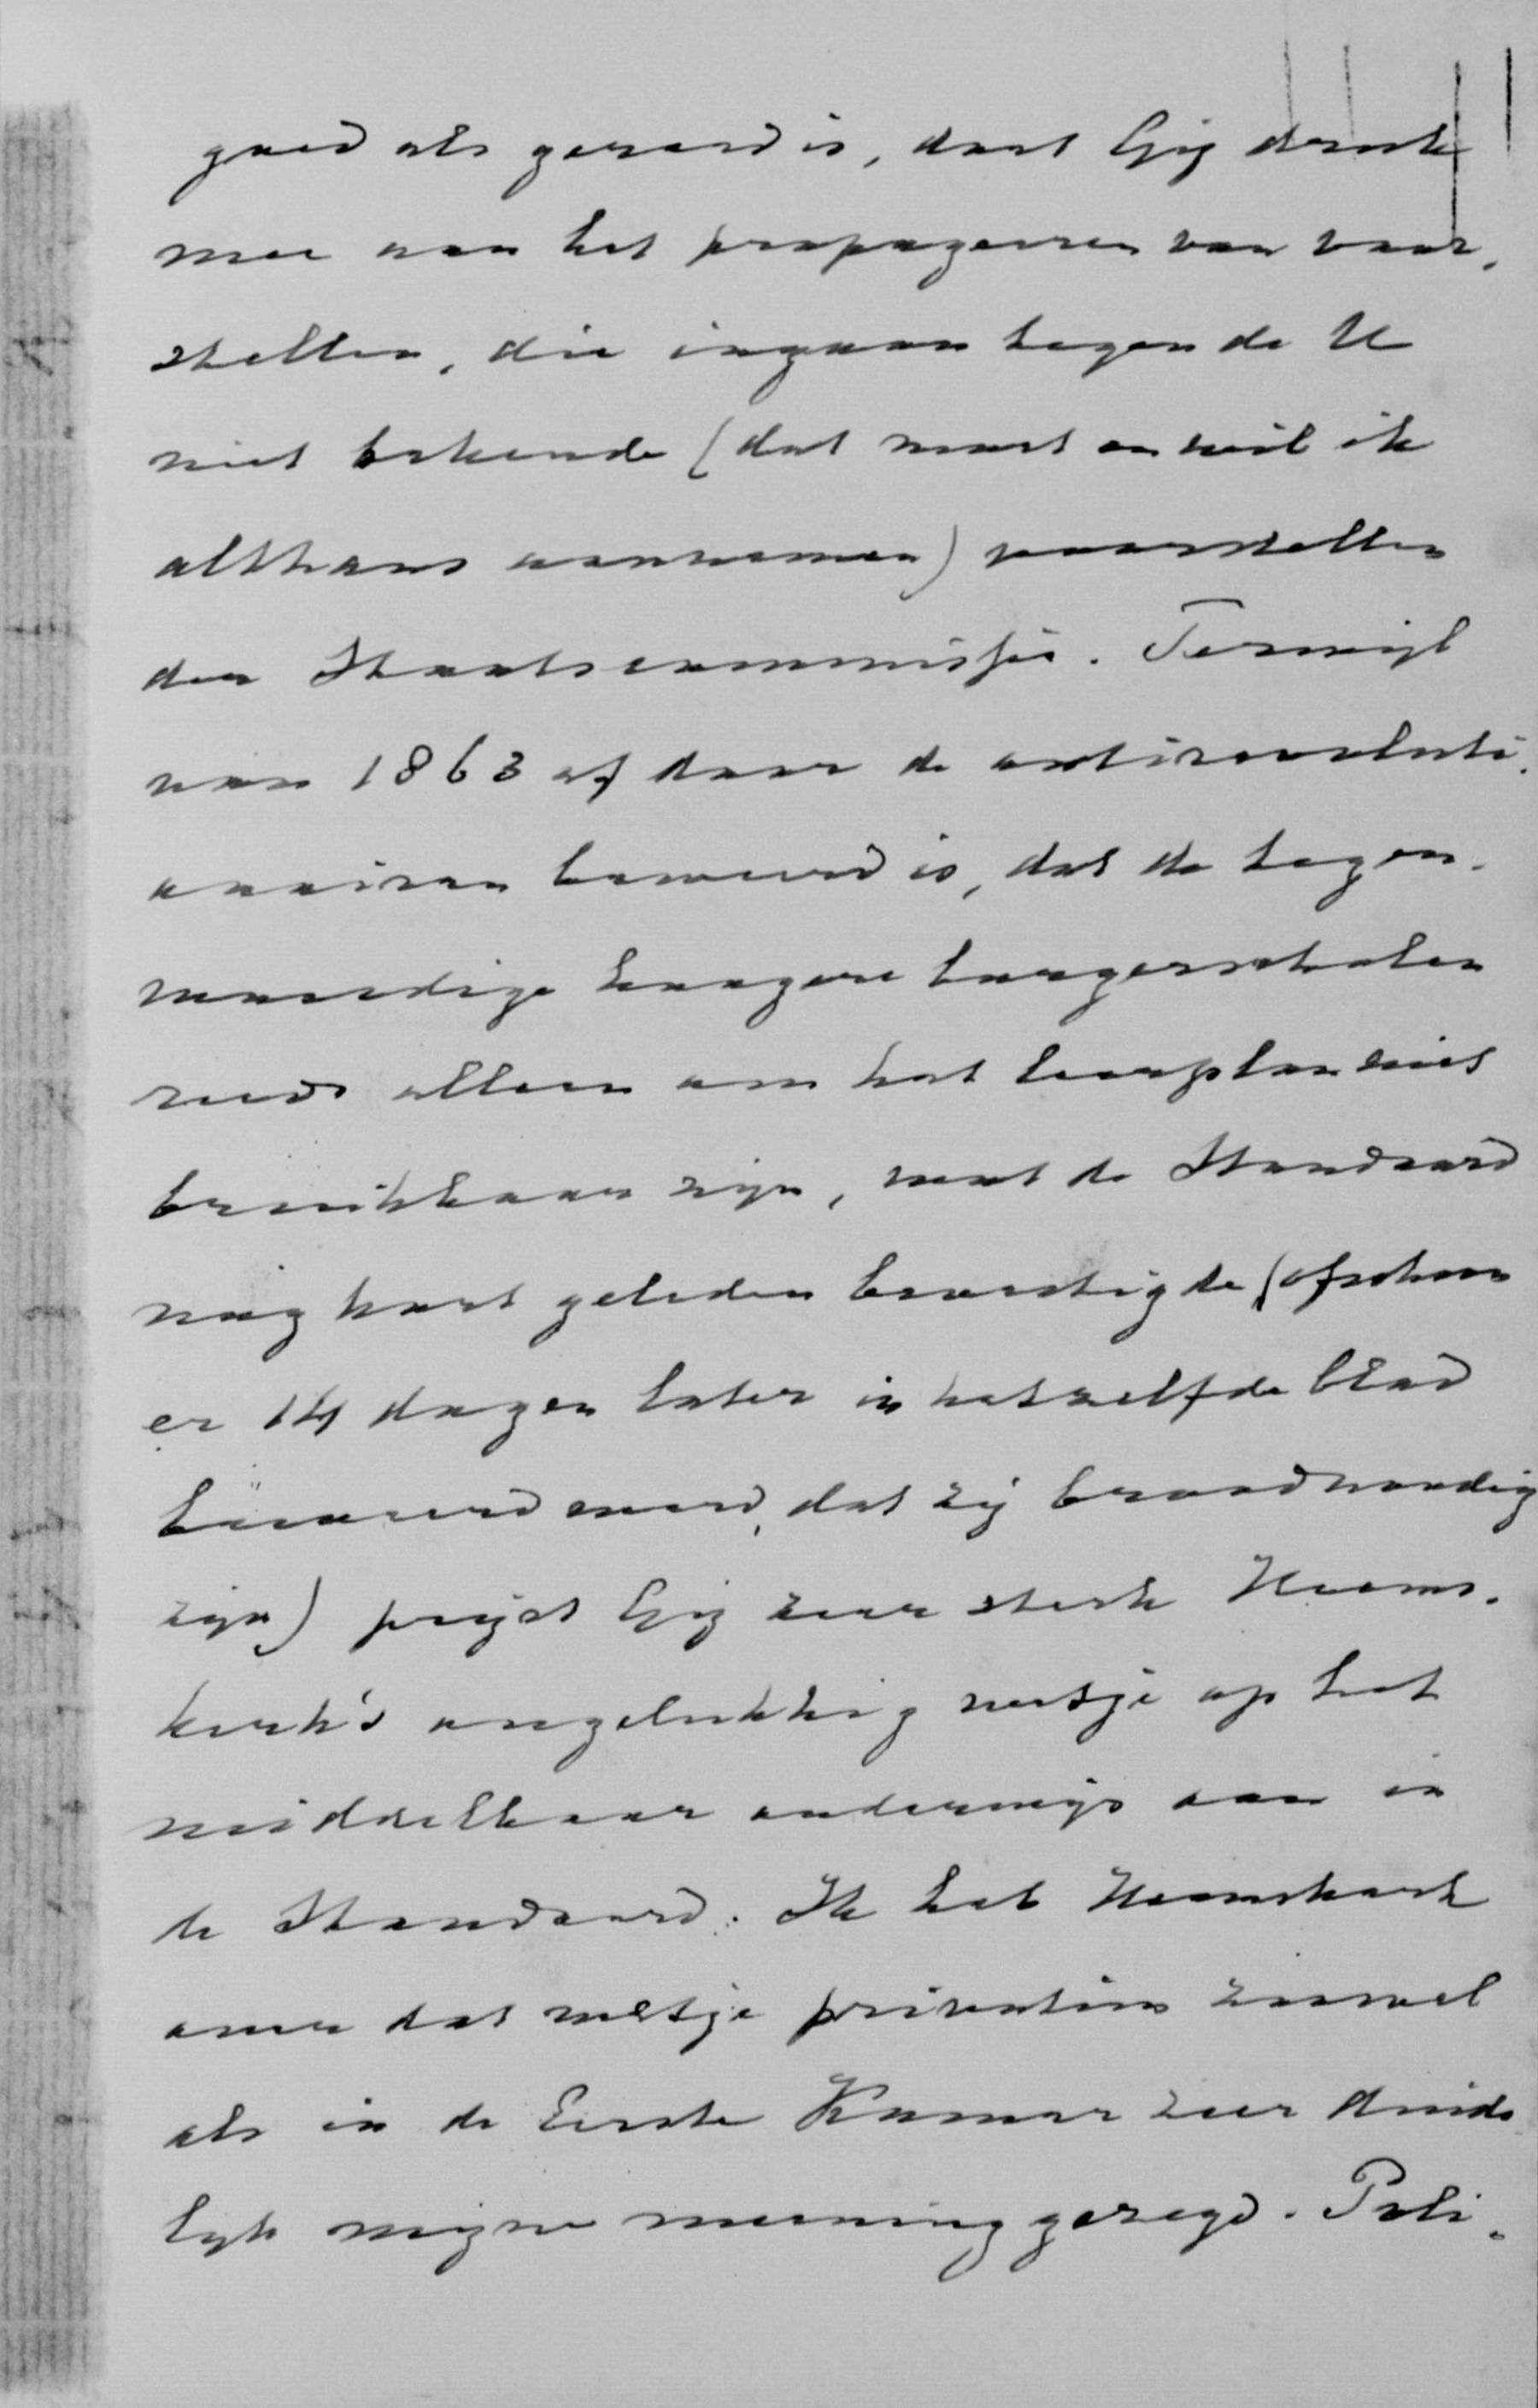 goed als gereed is, doet Gij druk
mee aan het propageeren van voor-
stellen, die ingaan tegen de U
niet bekende (dat moet en wil ik
althans aannemen) voorstellen
der Staatscommissie. Terwijl
van 1863 af door de antirevoluti-
onairen beweerd is, dat de tegen-
woordige hoogere burgerscholen
reeds alleen om het leerplan niet
bruikbaar zijn, wat de Standaard
nog kort geleden bevestigde (ofschoon
er 14 dagen later in hetzelfde blad
beweerd werd, dat zij broodnoodig
zijn) prijst Gij zeer sterk Heems-
kerk's ongelukkig wetje op het
middelbaar onderwijs aan in
de Standaard. Ik heb Heemskerk
over dat wetje privatim zoowel
als in de Eerste Kamer zeer duide
lijk mijne meening gezegd. Poli-